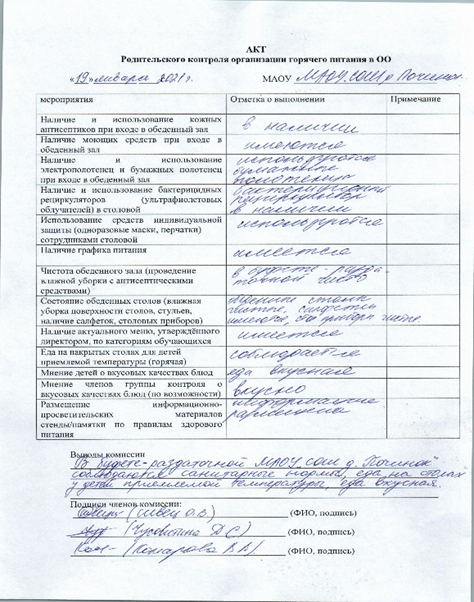 АКТ
Родительского контроля организации горячего питания в ОО
«19» января 2021 г. МАОУ МАОУ СОШ д. Починок
мероприятия Отметка о выполнении Примечание
Наличие и использование кожных антисептиков при входе в обеденный зал в наличии
Наличие моющих средств при входе в обеденный зал имеются
Наличие и использование электрополотенец и бумажных полотенец при входе в обеденный зал используются бумажные полотенца
Наличие и использование бактерицидных рециркуляторов (ультрафиолетовых облучателей) в столовой бактерицидный рециркулятор в наличии
Использование средств индивидуальной защиты (одноразовые маски, перчатки) сотрудниками столовой используются
Наличие графика питания имеется
Чистота обеденного зала (проведение влажной уборки с антисептическими средствами) в буфете-раздаточной чисто
Состояние обеденных столов (влажная уборка поверхности столов, стульев, наличие салфеток, столовых приборов) обеденные столы чистые, салфетки имеются, приборы чистые
Наличие актуального меню, утверждённого директором, по категориям обучающихся имеется
Еда на накрытых столах для детей приемлемой температуры (горячая) соблюдается
Мнение детей о вкусовых качествах блюд еда вкусная
Мнение членов группы контроля о вкусовых качествах блюд (по возможности) вкусно
Размещение информационно-просветительских материалов стенды/памятки по правилам здорового питания информация размещена
Выводы комиссии
В буфете-раздаточной МАОУ СОШ д. Починок
соблюдаются санитарные нормы, еда на столах
у детей приемлемой температуры, еда вкусная.
Подписи членов комиссии:
(Швец О.В) (ФИО, подпись)
(Д С) (ФИО, подпись)
(Комарова В.А) (ФИО, подпись)